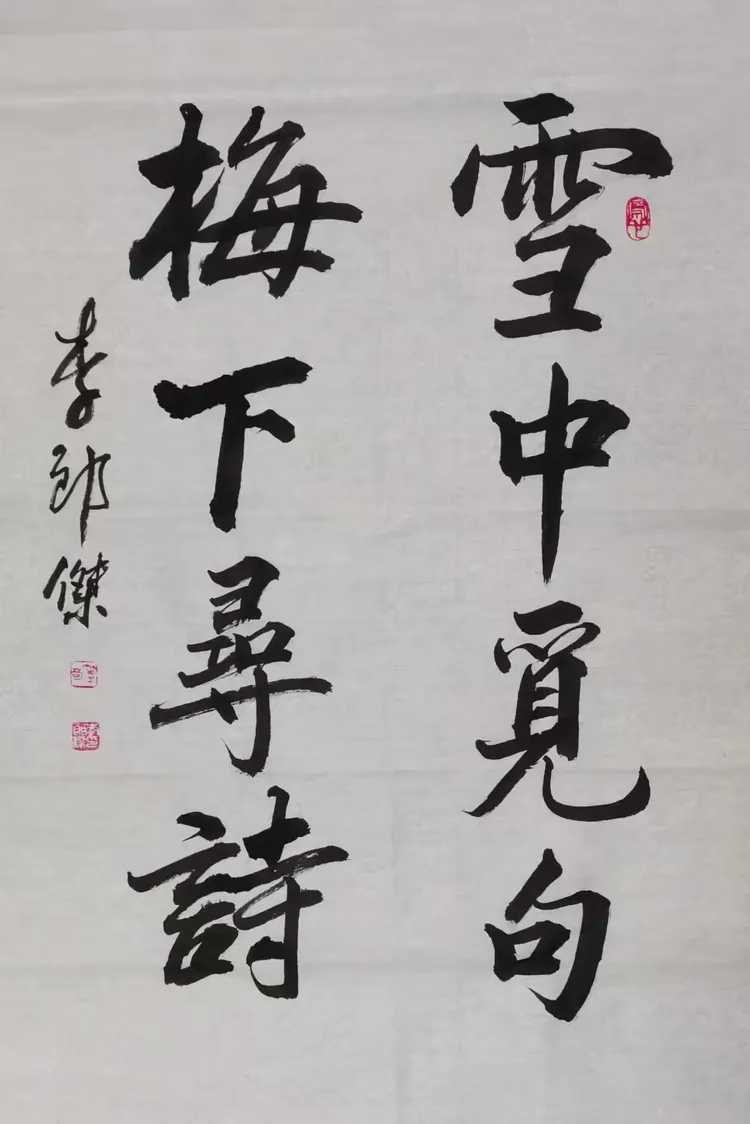 雪中覓句
梅下尋詩
李郎傑